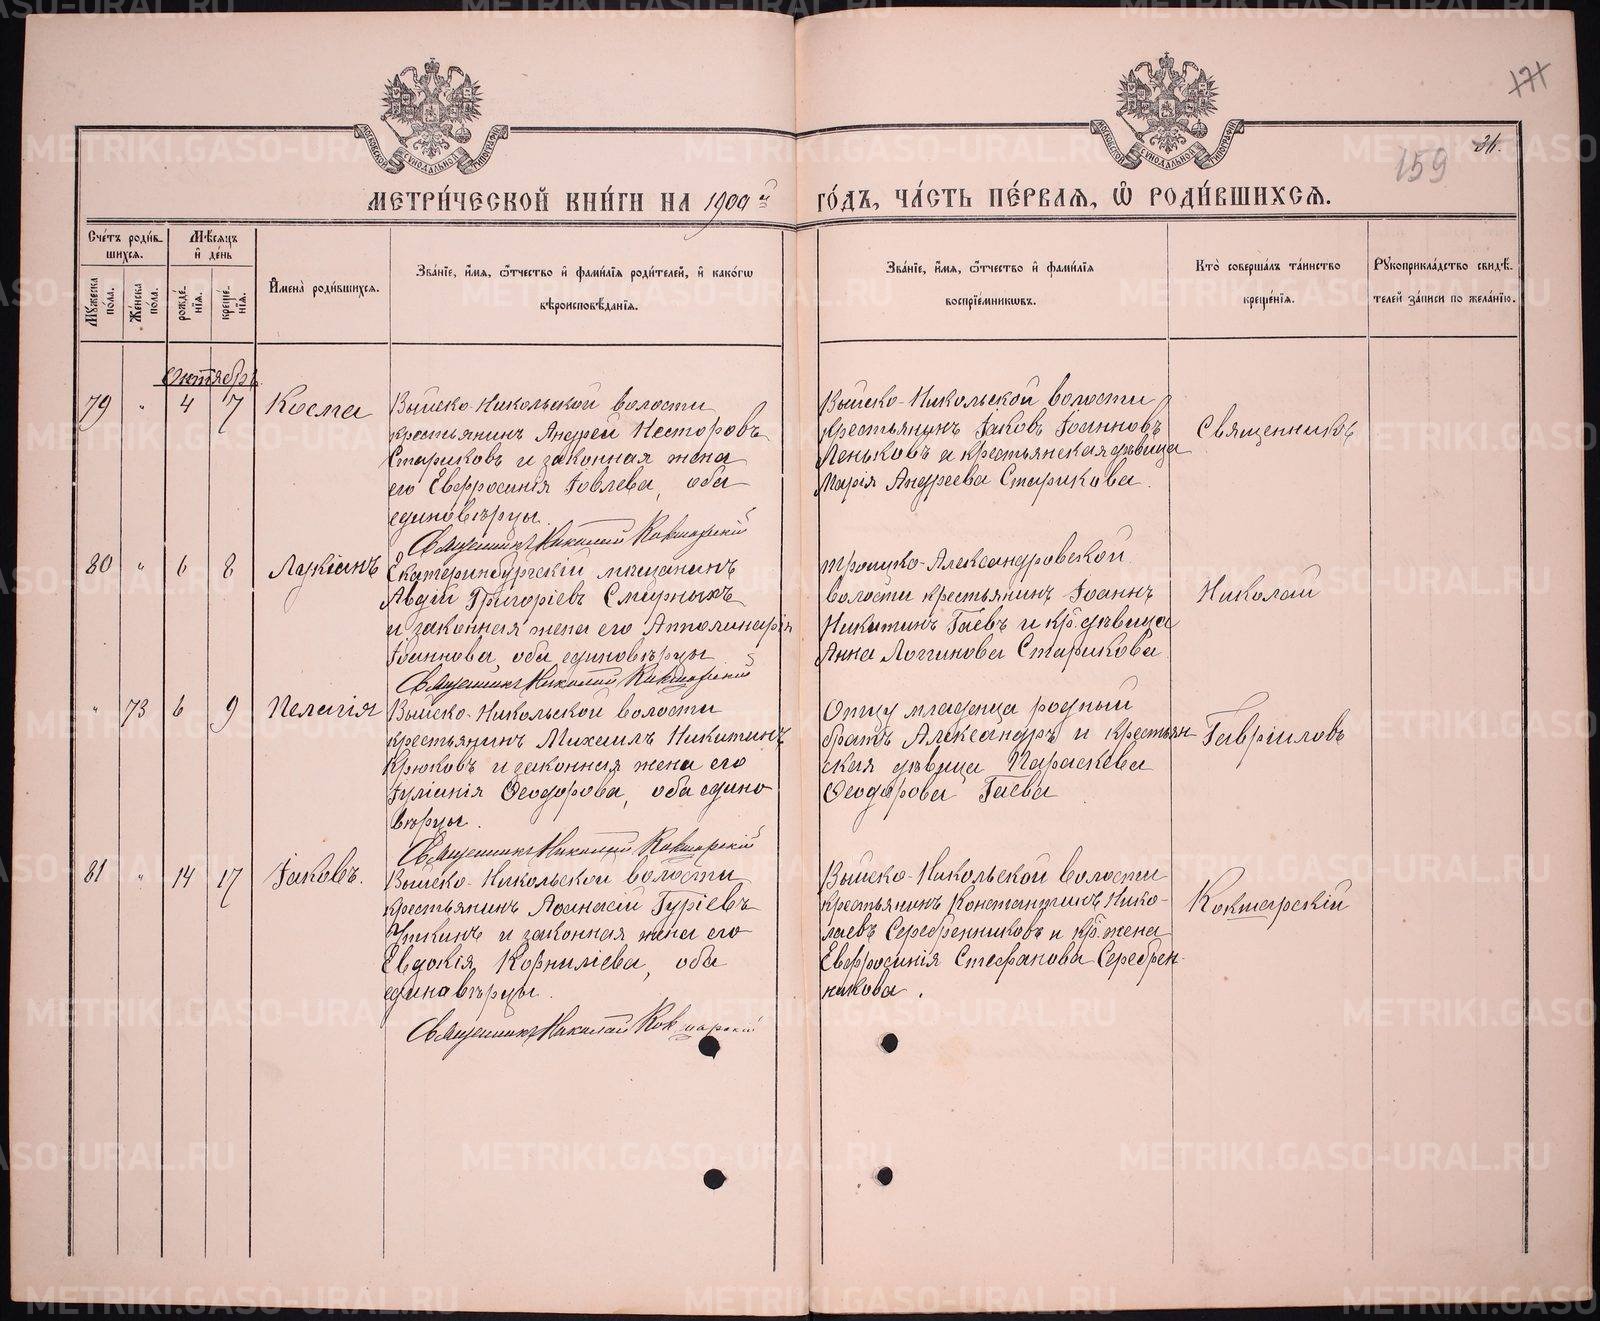 171
159
31.
МОСКОВСКОЙ СѴНОДАЛЬНОЙ ТИПОГРАФІИ
МОСКОВСКОЙ СѴНОДАЛЬНОЙ ТИПОГРАФІИ
МЕТРИ́ЧЕСКОЙ КНИ́ГИ НА 1900й ГО́ДЪ, ЧА́СТЬ ПЕ́РВАѦ, Ѽ РОДИ́ВШИХСѦ.
Счетъ родив-
шихся.
Мѣсяцъ
и день
Мужеска
пола.
Женска
пола.
рожде-
нія.
креще-
нія.
Имена родившихся.
Званіе, имя, ѿчество и фамилія родителей, и какогѡ
вѣроисповѣданія.
Званіе, имя, ѿчество и фамилія
воспріемникѡвъ.
Кто совершалъ таинство
крещенія.
Рукоприкладство свидѣ-
телей записи по желанію.
Октябрь
79 " 4 7 Косма
Выйско-Никольской волости
крестьянинъ Андрей Несторовъ
Стариковъ и законная жена
его Евфросинія Іовлева, оба
единовѣрцы.
Священникъ Николай Кокшарскій
Выйско-Никольской волости
крестьянинъ Іаковъ Іоанновъ
Леньковъ и крестьянская дѣвица
Марія Андреева Старикова.
Священникъ
80 " 6 8 Лукіанъ
Екатеринбургскій мѣщанинъ
Авдій Григоріевъ Смирныхъ
и законная жена его Апполинарія
Іоаннова, оба единовѣрцы
Священникъ Николай Кокшарскій
Троицко-Александровской
волости крестьянинъ Іоаннъ
Никитинъ Гаевъ и кр. дѣвица
Анна Логгинова Старикова
Николай
" 73 6 9 Пелагія
Выйско-Никольской волости
крестьянинъ Михаилъ Никитинъ
Крюковъ и законная жена его
Іуліанія Ѳеодорова, оба едино-
вѣрцы.
Священникъ Николай Кокшарскій
Отцу младенца родный
братъ Александръ и крестьян-
ская дѣвица Параскева
Ѳеодорова Гаева
Гавріиловъ
81 " 14 17 Іаковъ.
Выйско-Никольской волости
крестьянинъ Аѳанасій Гуріевъ
Уткинъ и законная жена его
Евдокія Корниліева, оба
единовѣрцы.
Священникъ Николай Кокшарскій
Выйско-Никольской волости
крестьянинъ Константинъ Нико-
лаевъ Серебренниковъ и кр. жена
Евфросинія Стефанова Серебрен-
никова.
Кокшарскій
METRIKI.GASO-URAL.RU